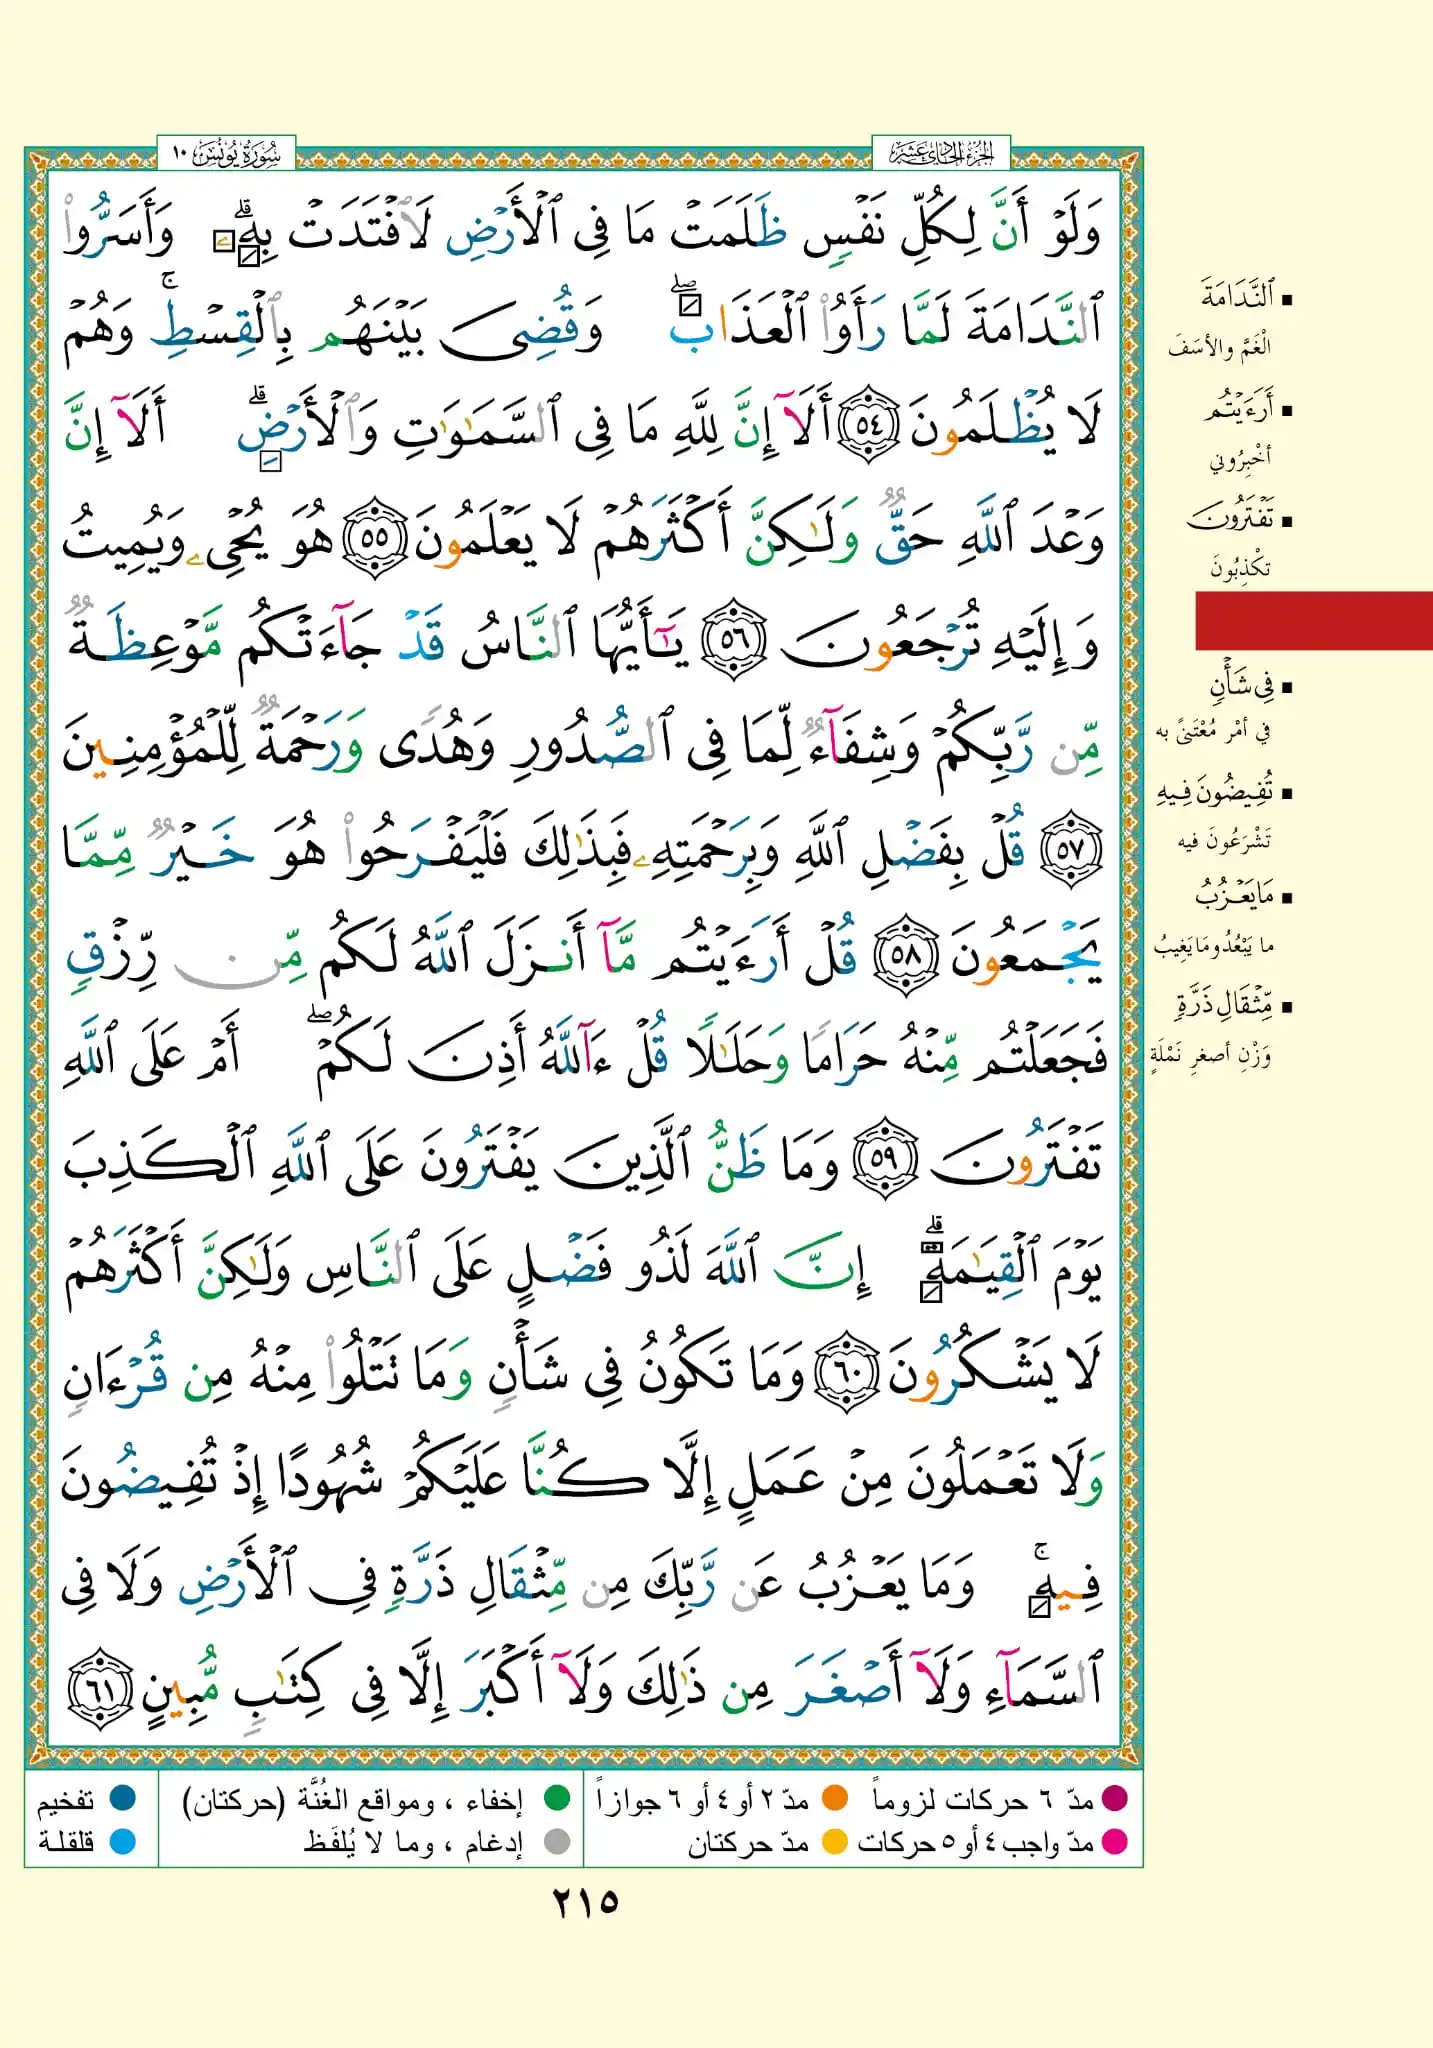 الجزء الحادي عشر
سورة يونس ١٠
وَلَوْ أَنَّ لِكُلِّ نَفْسٍ ظَلَمَتْ مَا فِى ٱلْأَرْضِ لَٱفْتَدَتْ بِهِۦ ۗ وَأَسَرُّوا۟
ٱلنَّدَامَةَ لَمَّا رَأَوُا۟ ٱلْعَذَابَ ۖ وَقُضِىَ بَيْنَهُم بِٱلْقِسْطِ ۚ وَهُمْ
لَا يُظْلَمُونَ ٥٤ أَلَآ إِنَّ لِلَّهِ مَا فِى ٱلسَّمَـٰوَٰتِ وَٱلْأَرْضِ ۗ أَلَآ إِنَّ
وَعْدَ ٱللَّهِ حَقٌّ وَلَـٰكِنَّ أَكْثَرَهُمْ لَا يَعْلَمُونَ ٥٥ هُوَ يُحْىِۦ وَيُمِيتُ
وَإِلَيْهِ تُرْجَعُونَ ٥٦ يَـٰٓأَيُّهَا ٱلنَّاسُ قَدْ جَآءَتْكُم مَّوْعِظَةٌ
مِّن رَّبِّكُمْ وَشِفَآءٌ لِّمَا فِى ٱلصُّدُورِ وَهُدًى وَرَحْمَةٌ لِّلْمُؤْمِنِينَ
٥٧ قُلْ بِفَضْلِ ٱللَّهِ وَبِرَحْمَتِهِۦ فَبِذَٰلِكَ فَلْيَفْرَحُوا۟ هُوَ خَيْرٌ مِّمَّا
يَجْمَعُونَ ٥٨ قُلْ أَرَءَيْتُم مَّآ أَنزَلَ ٱللَّهُ لَكُم مِّن رِّزْقٍ
فَجَعَلْتُم مِّنْهُ حَرَامًا وَحَلَـٰلًا قُلْ ءَآللَّهُ أَذِنَ لَكُمْ ۖ أَمْ عَلَى ٱللَّهِ
تَفْتَرُونَ ٥٩ وَمَا ظَنُّ ٱلَّذِينَ يَفْتَرُونَ عَلَى ٱللَّهِ ٱلْكَذِبَ
يَوْمَ ٱلْقِيَـٰمَةِ ۗ إِنَّ ٱللَّهَ لَذُو فَضْلٍ عَلَى ٱلنَّاسِ وَلَـٰكِنَّ أَكْثَرَهُمْ
لَا يَشْكُرُونَ ٦٠ وَمَا تَكُونُ فِى شَأْنٍ وَمَا تَتْلُوا۟ مِنْهُ مِن قُرْءَانٍ
وَلَا تَعْمَلُونَ مِنْ عَمَلٍ إِلَّا كُنَّا عَلَيْكُمْ شُهُودًا إِذْ تُفِيضُونَ
فِيهِ ۚ وَمَا يَعْزُبُ عَن رَّبِّكَ مِن مِّثْقَالِ ذَرَّةٍ فِى ٱلْأَرْضِ وَلَا فِى
ٱلسَّمَآءِ وَلَآ أَصْغَرَ مِن ذَٰلِكَ وَلَآ أَكْبَرَ إِلَّا فِى كِتَـٰبٍ مُّبِينٍ ٦١
▪ ٱلنَّدَامَةَ
الْغَمَّ والأسَفَ
▪ أَرَءَيْتُم
أخْبِرُوني
▪ تَفْتَرُونَ
تكْذِبُونَ
▪ فِى شَأْنٍ
في أمْر مُعْتَنىً به
▪ تُفِيضُونَ فِيهِ
تَشْرَعُونَ فيه
▪ مَا يَعْزُبُ
ما يَبْعُدُ ومَا يَغِيبُ
▪ مِّثْقَالِ ذَرَّةٍ
وَزْنِ أصغرِ نَمْلَةٍ
مدّ ٦ حركات لزوماً مدّ ٢ أو ٤ أو ٦ جوازاً
مدّ واجب ٤ أو ٥ حركات مدّ حركتان
إخفاء ، ومواقع الغُنَّة (حركتان)
إدغام ، وما لا يُلفَظ
تفخيم
قلقلة
٢١٥